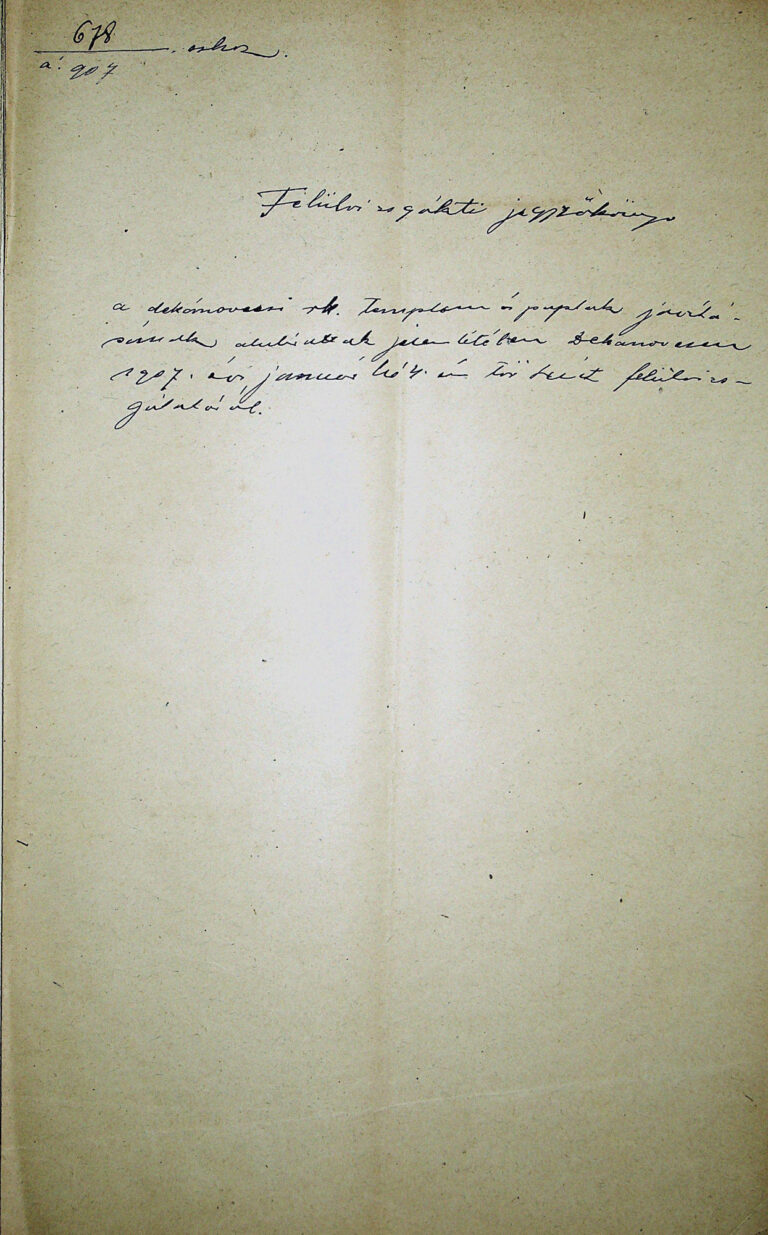 678
á. 907 . oshoz.
Felülvizsgálati jegyzőkönyv
a dekánoveczi rk. templom és paplak javitá-
sának alulirottak jelenlétében Dekanoveczen
1907. évi január hó 4. én történt felülvizs-
gálatáról.